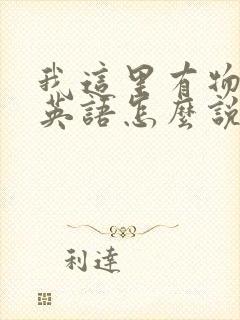 我這里有物
英語怎麼說
利達